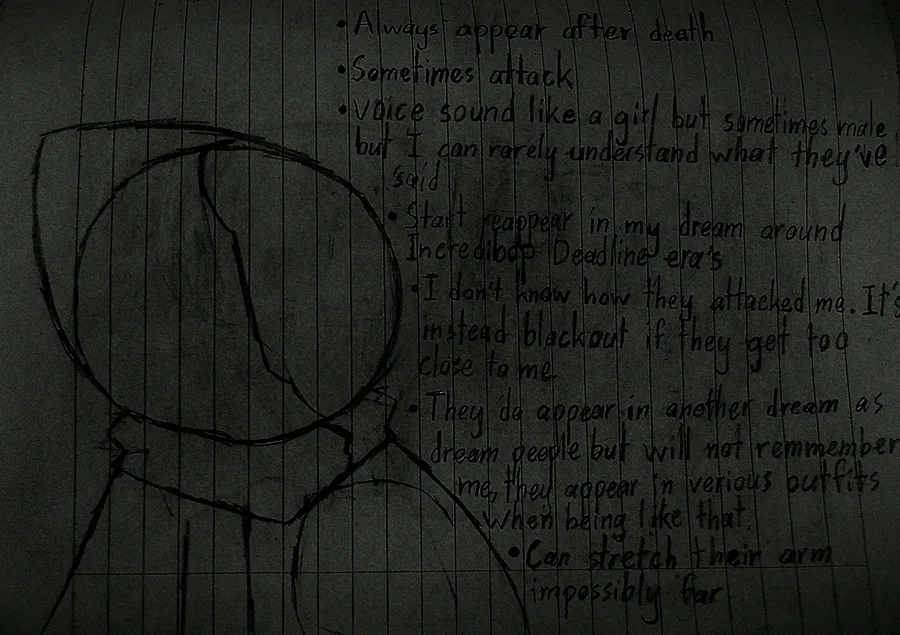 • Always appear after death
• Sometimes attack
• voice sound like a girl but sometimes male,
but I can rarely understand what they've
said
• Start reappear in my dream around
Incredibop Deadline era's
• I don't know how they attacked me. It's
instead blackout if they get too
close to me.
• They do appear in another dream as
dream people but will not remmember
me, they appear in verious outfits
when being like that.
• Can stretch their arm
impossibly far